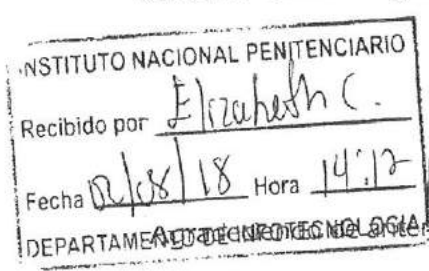 INSTITUTO NACIONAL PENITENCIARIO
Recibido por Elizabeth C.
Fecha 02/08/18 Hora 14:12
DEPARTAMENTO DE INFOTECNOLOGIA